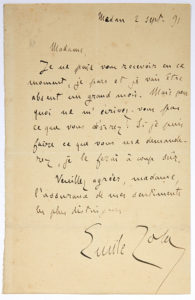 Medan 2 sept. 91
Madame,
Je ne puis vous recevoir en ce
moment, je pars et je vais être
absent un grand mois. Mais pour
quoi ne m'écrivez-vous pas
ce que vous désirez ? Si je puis
faire ce que vous me demande-
rez, je le ferai à coup sûr.
Veuillez agréer, madame,
l'assurance de mes sentiments
les plus distingués.
Emile Zola